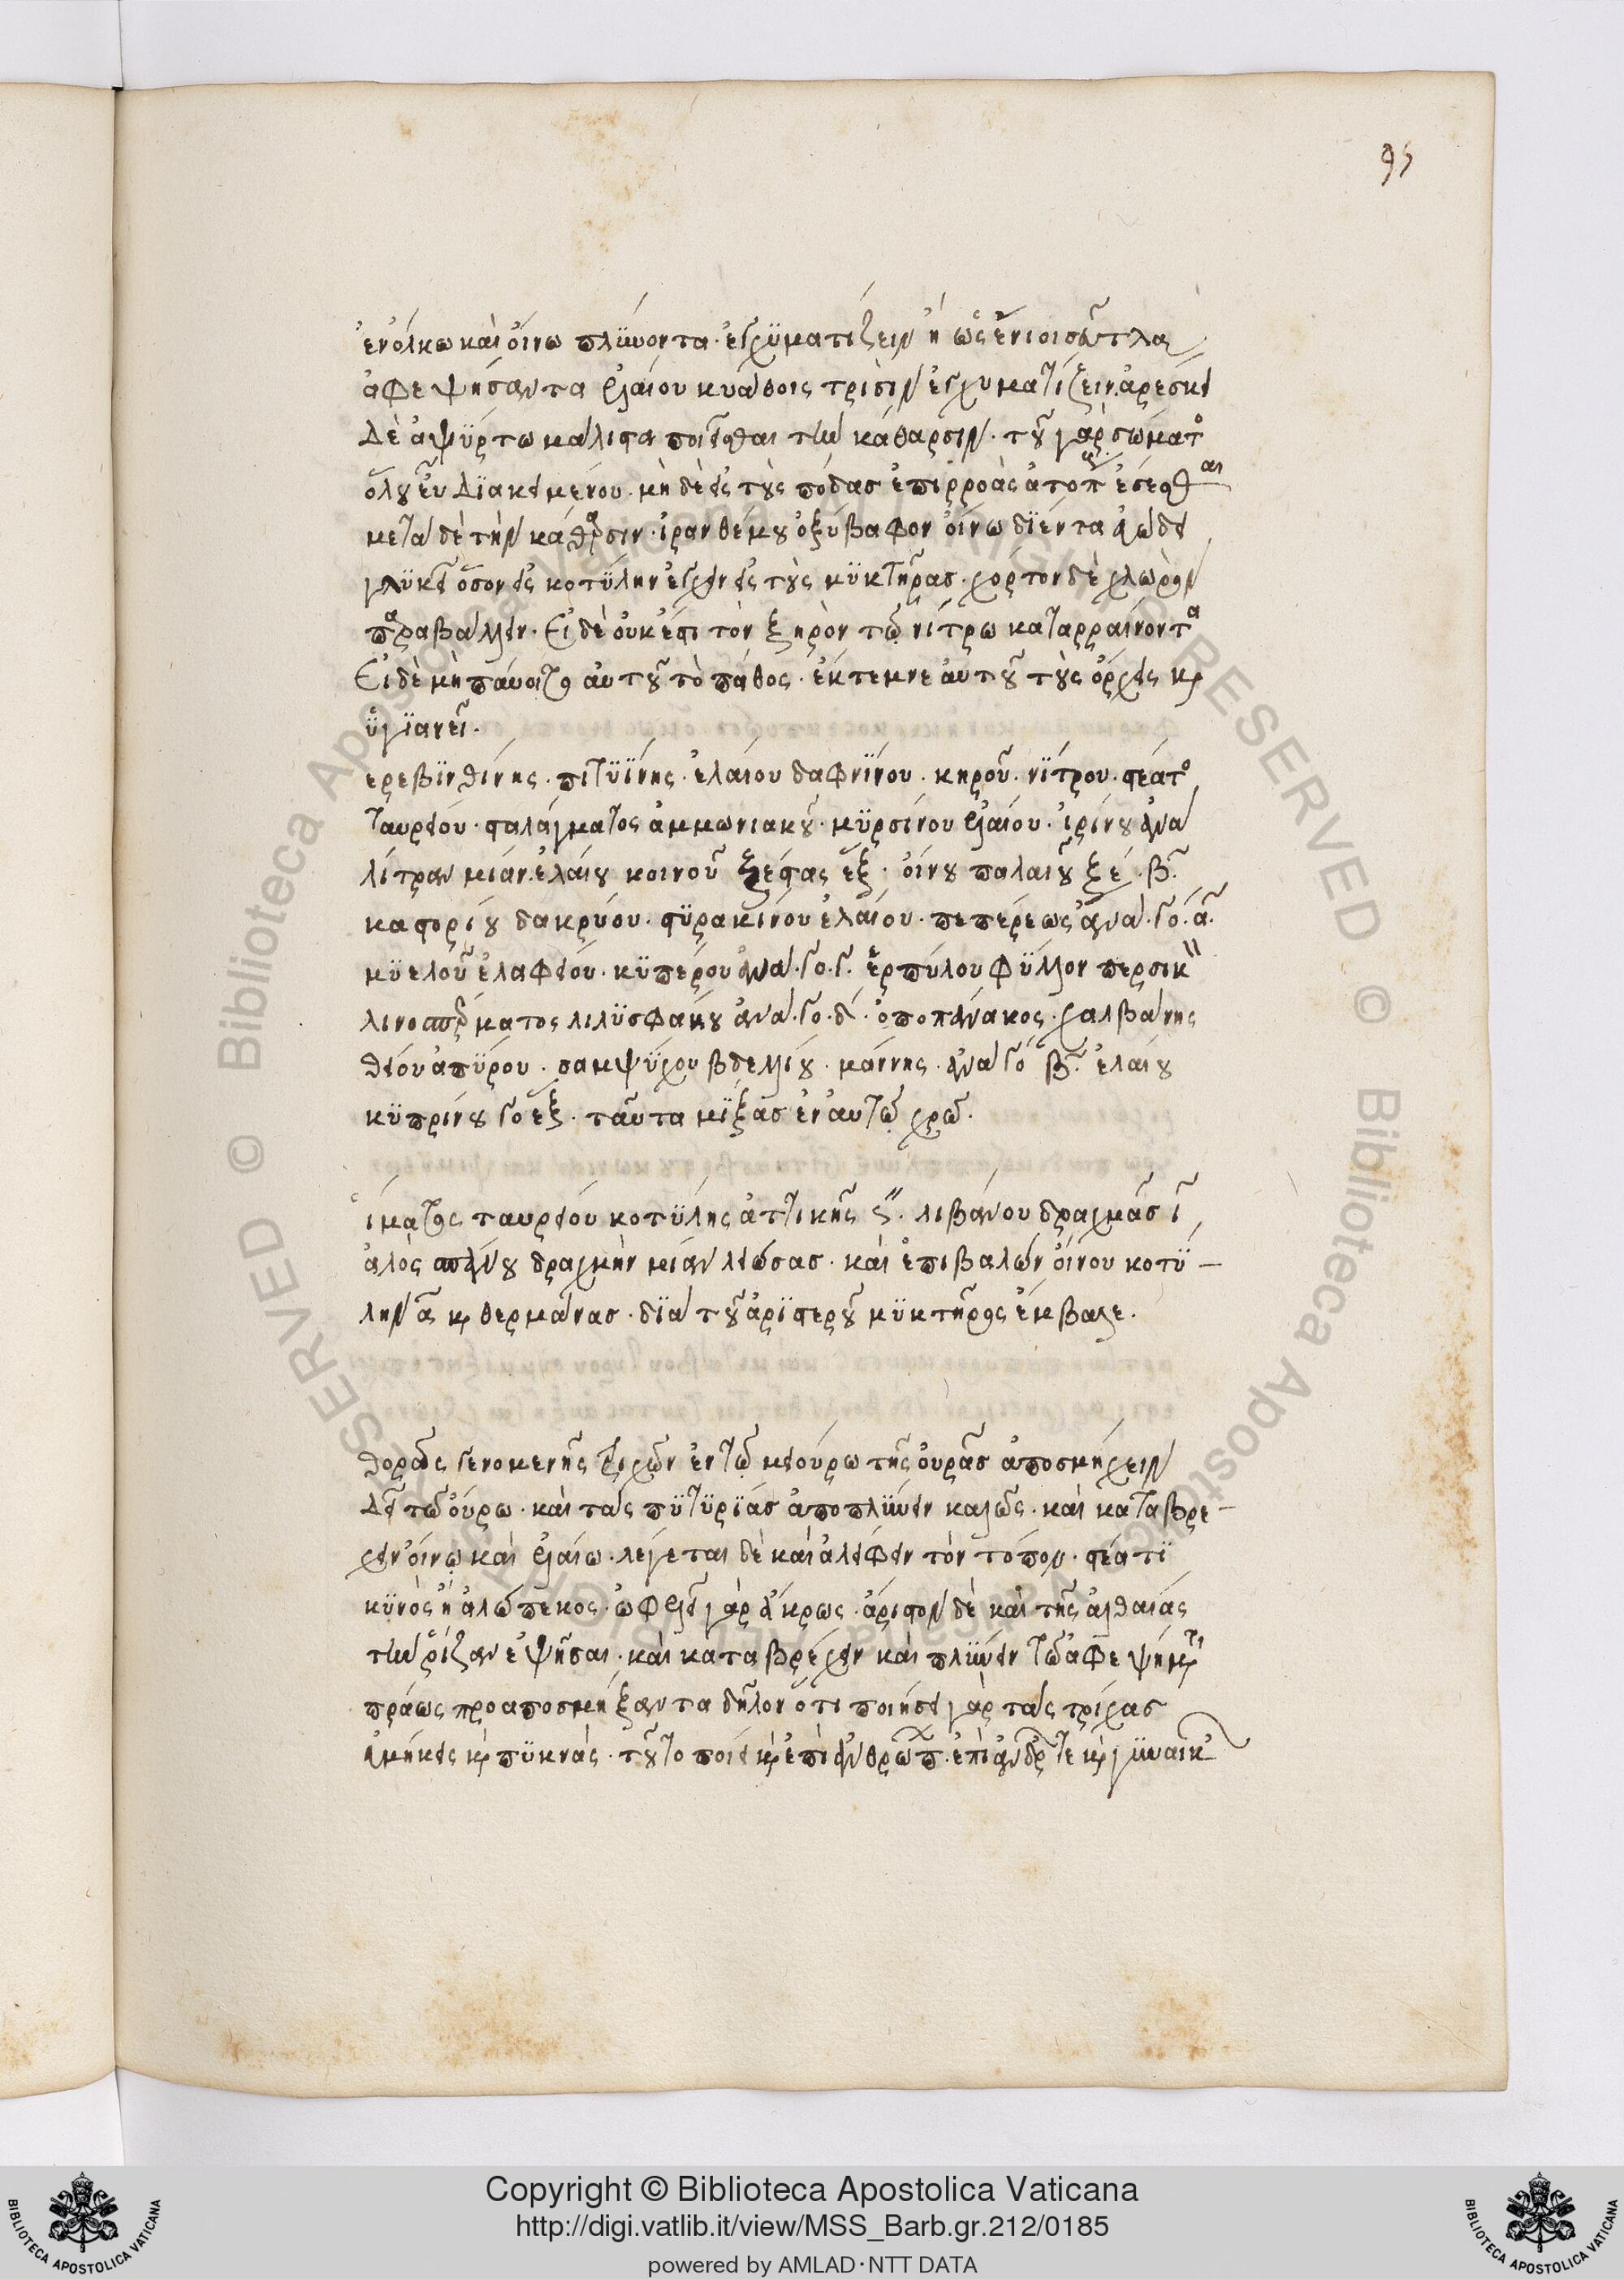 95
ἐν ὄλκω καὶ οἴνω πλύνοντα. ἐγχϋματίζειν ἢ ὡς ἔνιοι σεῦτλα
ἀφεψήσαντα ἐλαίου κυάθοις τρίσιν ἐγχυματίζειν. ἀρέσκει
Δὲ ἀψΰρτω μάλιστα ποιεῖσθαι τὴν κάθαρσιν. τοῦ γὰρ σώματος
ὅλου εὖ Δϊακειμένου. μὴ δὲ εἰς τοὺς πόδας ἐπιρροὰς ἀτόπους ἔσεσθαι
μετὰ δὲ τὴν κάθαρσιν. ἰρανθέμου ὀξύβαφον οἴνω διέντα εὐώδει
γλϋκεῖ ὅσον εἰς κοτΰλην ἐγχεῖν εἰς τοὺς μϋκτῆρας. χόρτον δὲ χλωρὸν
παραβάλλειν. Εἰ δὲ οὐκ ἔστι τὸν ξηρὸν τῷ νίτρω καταρραίνοντα
Εἰ δὲ μὴ παύοιτο αὐτοῦ τὸ πάθος. ἔκτεμνε αὐτοῦ τοὺς ὄρχεις καὶ
ὑγϊανεῖ.
ερεβϊνθίνης. πιτϋΐνης. ἐλαίου δαφνΐνου. κηροῦ. νΐτρου. στέατος
ταυρείου. σταλάγματος ἀμμωνιακοῦ. μϋρσίνου ἐλαίου. ἰρίνου ἀνὰ
λίτραν μίαν. ἐλαίου κοινοῦ ξέστας ἓξ. οἴνου παλαιοῦ ξέ. β.
καστορίου δακρύου. στϋρακίνου ἐλαίου. πεπέρεως ἀνὰ. γο. α.
μϋελοῦ ἐλαφείου. κϋπέρου ἀνὰ. γο. γ. ἑρπύλου φΰλλον περσικ
λινοσπέρματος λιλϋσφάκου ἀνὰ. γο. δ. ὀποπάνακος. χαλβάνης
θείου ἀπΰρου. σαμψΰχου βδελλίου. μάννης. ἀνὰ γο β. ἐλαίου
κϋπρίνου γο ἓξ. ταῦτα μΐξας ἐν αὐτῷ χρῶ.
ἵματος ταυρείου κοτΰλης ἀττικῆς ς. λιβάνου δραχμὰς ι
ἁλὸς δραχμὴν μίαν λειώσας. καὶ ἐπιβαλών οἴνου κοτύ-
λην α καὶ θερμάνας. δϊὰ τοῦ ἀρϊστεροῦ μϋκτῆρος ἔμβαλε.
θορᾶς γενομένης τριχῶν ἐν τῷ μειούρω τῆς οὐρᾶς ἀποσμήχειν
Δεῖ τῷ οὔρω. καὶ τὰς πϋτϋρϊάς ἀποπλΰνειν καλῶς. καὶ καταβρέ-
χειν οἴνῳ καὶ ἐλαίω. λέγεται δὲ καὶ ἀλείφειν τὸν τόπον. στέατϊ
κϋνὸς ἢ ἀλώπεκος. ὠφελεῖ γὰρ ἄκρως. ἄριστον δὲ καὶ τῆς ἀλθαίας
τὴν ῥίζαν ἑψῆσαι. καὶ καταβρέχειν καὶ πλΰνειν τῷ ἀφεψήματι
πράως προαποσμήξαντα δῆλον ὅτι ποιήσει γὰρ τὰς τρίχας
εὐμήκεις καὶ πϋκνάς. τοῦτο ποιεῖ καὶ ἐπὶ ἀνθρώπων. ἐπὶ ἀνδρῶν τε καὶ γϋναικῶν
Copyright © Biblioteca Apostolica Vaticana
http://digi.vatlib.it/view/MSS_Barb.gr.212/0185
powered by AMLAD·NTT DATA